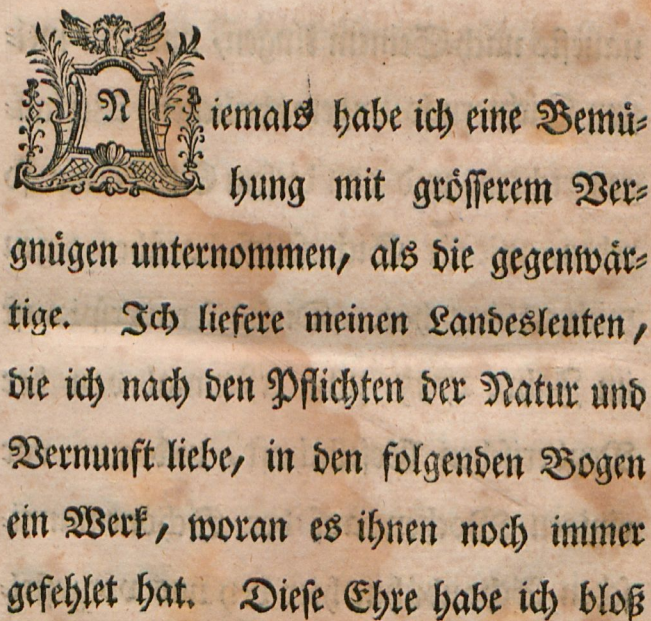 Niemals habe ich eine Bemü-
hung mit grösserem Ver-
gnügen unternommen, als die gegenwär-
tige. Ich liefere meinen Landesleuten,
die ich nach den Pflichten der Natur und
Vernunft liebe, in den folgenden Bogen
ein Werk, woran es ihnen noch immer
gefehlet hat. Diese Ehre habe ich bloß